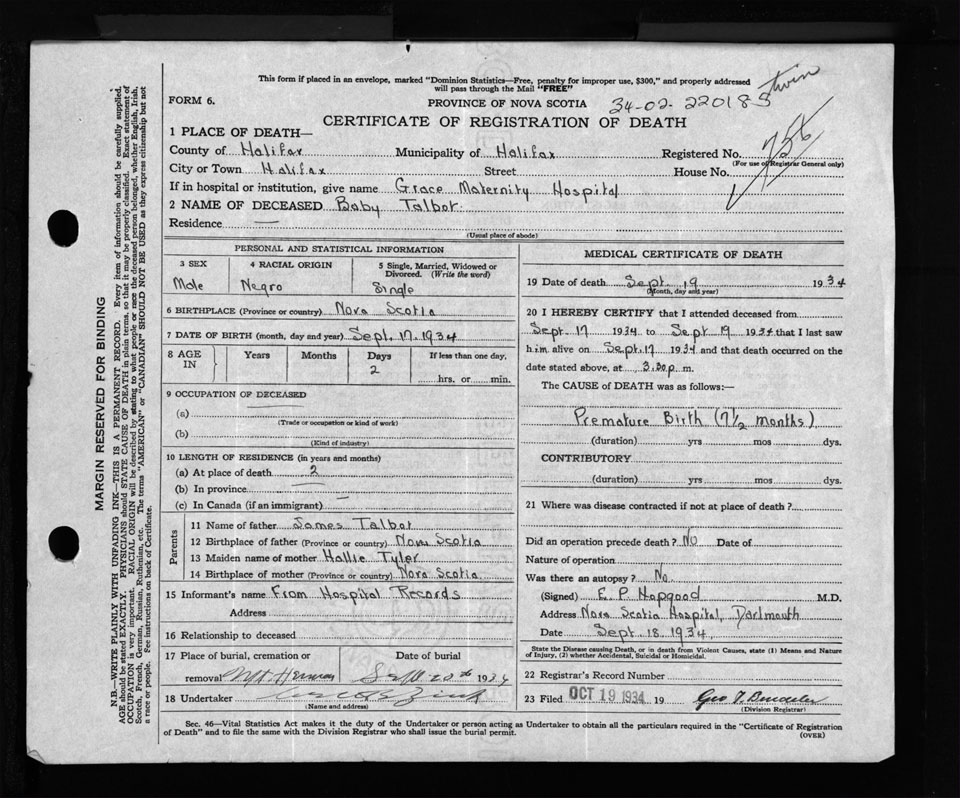 This form if placed in an envelope, marked "Dominion Statistics—Free, penalty for improper use, $300," and properly addressed
will pass through the Mail "FREE"
twin
FORM 6.
PROVINCE OF NOVA SCOTIA
34-02-220185
CERTIFICATE OF REGISTRATION OF DEATH
1 PLACE OF DEATH—
County of Halifax Municipality of Halifax Registered No. 756
(For use of Registrar General only)
City or Town Halifax Street House No.
If in hospital or institution, give name Grace Maternity Hospital
2 NAME OF DECEASED Baby Talbot.
Residence —
(Usual place of abode)
PERSONAL AND STATISTICAL INFORMATION
3 SEX 4 RACIAL ORIGIN 5 Single, Married, Widowed or
Divorced. (Write the word)
Male Negro Single
6 BIRTHPLACE (Province or country) Nova Scotia
7 DATE OF BIRTH (month, day and year) Sept. 17. 1934
8 AGE IN Years Months Days If less than one day,
2
hrs. or min.
9 OCCUPATION OF DECEASED
(a)
(Trade or occupation or kind of work)
(b)
(Kind of industry)
10 LENGTH OF RESIDENCE (in years and months)
(a) At place of death 2
(b) In province
(c) In Canada (if an immigrant) —
Parents
11 Name of father James Talbot
12 Birthplace of father (Province or country) Nova Scotia
13 Maiden name of mother Hallie Tyler
14 Birthplace of mother (Province or country) Nova Scotia
15 Informant's name From Hospital Records
Address
16 Relationship to deceased
17 Place of burial, cremation or Date of burial
removal Mt. Sept 20th 1934
18 Undertaker
(Name and address)
MEDICAL CERTIFICATE OF DEATH
19 Date of death Sept. 19 1934
(Month, day and year)
20 I HEREBY CERTIFY that I attended deceased from
Sept. 17 1934 to Sept 19 1934 that I last saw
him alive on Sept. 17 1934 and that death occurred on the
date stated above, at 3.30 p. m.
The CAUSE of DEATH was as follows:—
Premature Birth (7 1/2 months)
(duration) yrs mos dys.
CONTRIBUTORY
(duration) yrs mos dys.
21 Where was disease contracted if not at place of death?
Did an operation precede death? No Date of
Nature of operation
Was there an autopsy? No
(Signed) E. P. Hapgood M.D.
Address Nova Scotia Hospital, Dartmouth
Date Sept. 18. 1934.
State the Disease causing Death, or in death from Violent Causes, state (1) Means and Nature
of Injury, (2) whether Accidental, Suicidal or Homicidal.
22 Registrar's Record Number
23 Filed OCT 19 1934 19 Geo
(Division Registrar)
Sec. 46—Vital Statistics Act makes it the duty of the Undertaker or person acting as Undertaker to obtain all the particulars required in the "Certificate of Registration
of Death" and to file the same with the Division Registrar who shall issue the burial permit.
(OVER)
MARGIN RESERVED FOR BINDING
N.B.—WRITE PLAINLY WITH UNFADING INK—THIS IS A PERMANENT RECORD. Every item of information should be carefully supplied.
AGE should be stated EXACTLY. PHYSICIANS should STATE CAUSE OF DEATH in plain terms, so that it may be properly classified. Exact statement of
OCCUPATION is very important. RACIAL ORIGIN will be described by stating to what people or race the deceased person belonged, whether English, Irish,
Scotch, French, German, Russian, Ruthenian, etc. The terms "AMERICAN" or "CANADIAN" SHOULD NOT BE USED as they express citizenship but not
a race or people. See instructions on back of Certificate.